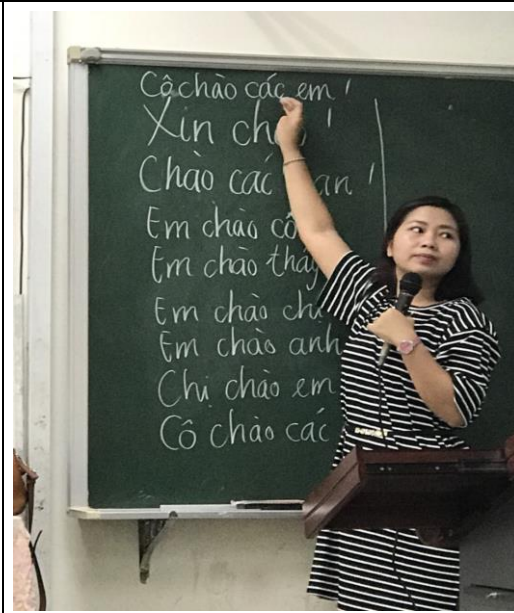 Cô chào các em!
Xin
Chào các
Em chào cô
Em chào thầy
Em chào
Em chào anh
Chị chào em
Cô chào các